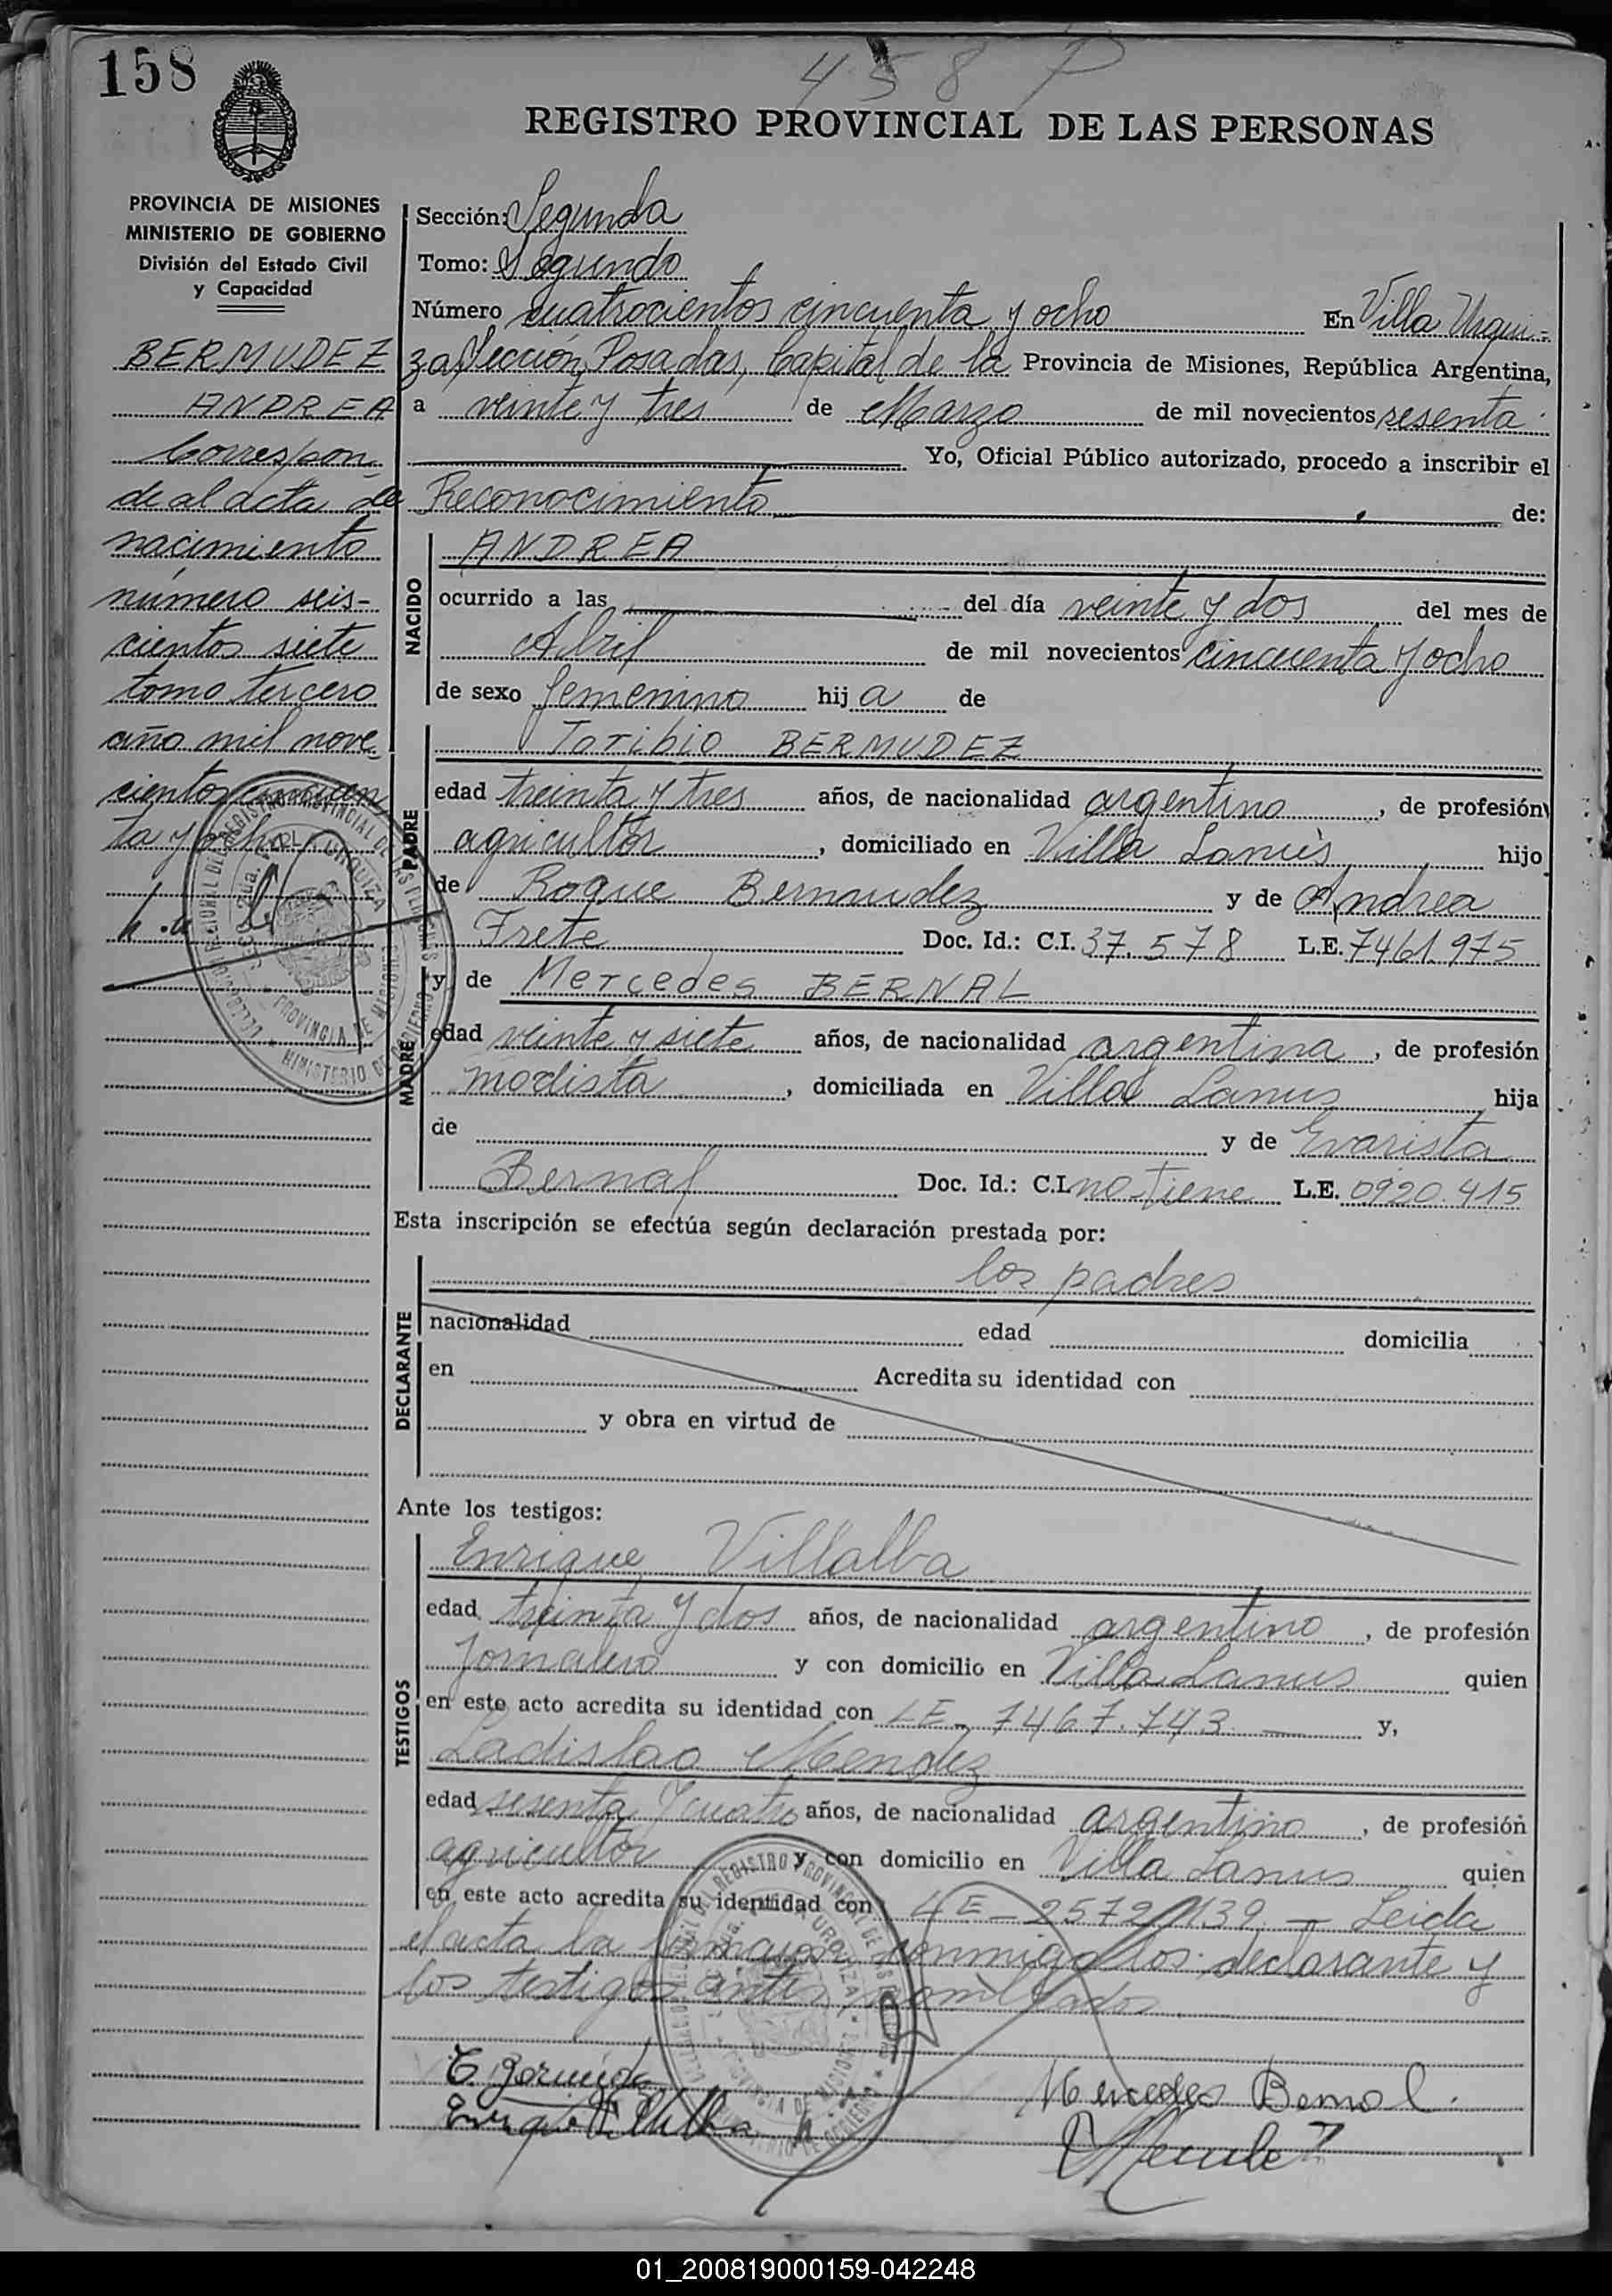 158
458 P
REGISTRO PROVINCIAL DE LAS PERSONAS
PROVINCIA DE MISIONES
MINISTERIO DE GOBIERNO
División del Estado Civil
y Capacidad
BERMUDEZ
ANDREA
Correspon
de al acta de
nacimiento
número seis-
cientos siete
tomo tercero
año mil nove-
cientos cincuen
ta y ocho
Sección: Segunda
Tomo: Segundo
Número cuatrocientos cincuenta y ocho En Villa Urqui-
za Sección, Posadas, Capital de la Provincia de Misiones, República Argentina,
a veinte y tres de Marzo de mil novecientos sesenta
Yo, Oficial Público autorizado, procedo a inscribir el
Reconocimiento de:
NACIDO
ANDREA
ocurrido a las del día veinte y dos del mes de
Abril de mil novecientos cincuenta y ocho
de sexo femenino hija de
PADRE
Toribio BERMUDEZ
edad treinta y tres años, de nacionalidad argentino, de profesión
agricultor, domiciliado en Villa Lanús hijo
de Roque Bermudez y de Andrea
Frete Doc. Id.: C.I. 37.578 L.E. 7461.975
MADRE
y de Mercedes BERNAL
edad veinte y siete años, de nacionalidad argentina, de profesión
modista, domiciliada en Villa Lanus hija
de y de Evarista
Bernal Doc. Id.: C.I. no tiene L.E. 0920.415
Esta inscripción se efectúa según declaración prestada por:
DECLARANTE
los padres
nacionalidad edad domicilia
en Acredita su identidad con
y obra en virtud de
Ante los testigos:
TESTIGOS
Enrique Villalba
edad treinta y dos años, de nacionalidad argentino, de profesión
Jornalero y con domicilio en Villa Lanus quien
en este acto acredita su identidad con LE- 7467.743 — y,
Ladislao Mendez
edad sesenta y cuatro años, de nacionalidad argentino, de profesión
agricultor y con domicilio en Villa Lanus quien
en este acto acredita su identidad con LE- 2572139 - Leida
el acta la firman conmigo los declarante y
los testigos antes nombrados
Mercedes Bernal.
01_200819000159-042248